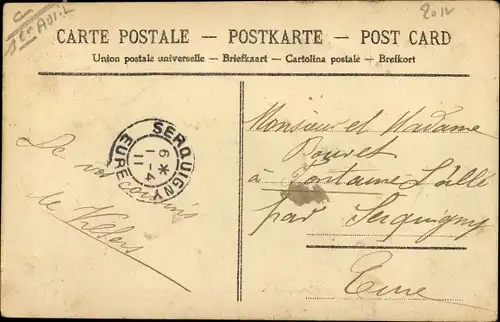 1er Avril
2012
CARTE POSTALE — POSTKARTE — POST CARD
Union postale universelle — Briefkaart — Cartolina postale — Brefkort
SERQUIGNY
6 *
1-4
11
EURE
De vos cousins
de Villers
Monsieur et Madame
à Fontaine L'abbé
par Serquigny
Eure